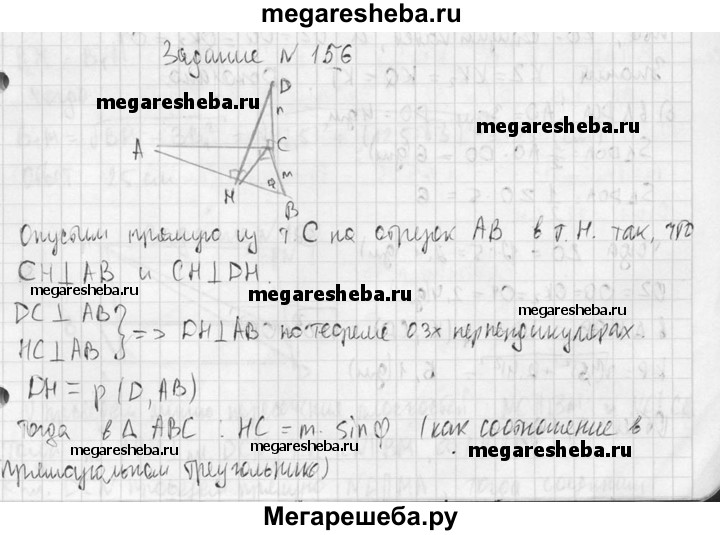 megaresheba.ru
Задание N 156
D
megaresheba.ru
n
megaresheba.ru
A
C
m
H
φ
B
Опустим прямую из т. C на отрезок AB в т. H. так, что
CH⊥AB и CH⊥DH.
megaresheba.ru
megaresheba.ru
DC⊥AB
HC⊥AB } => DH⊥AB по теореме о 3х перпендикулярах.
megaresheba.ru
DH = ρ (D, AB)
megaresheba.ru
megaresheba.ru
Тогда в Δ ABC : HC = m · sin φ (как соотношение в
megaresheba.ru
megaresheba.ru
megaresheba.ru
прямоугольном треугольнике)
Мегарешеба.ру